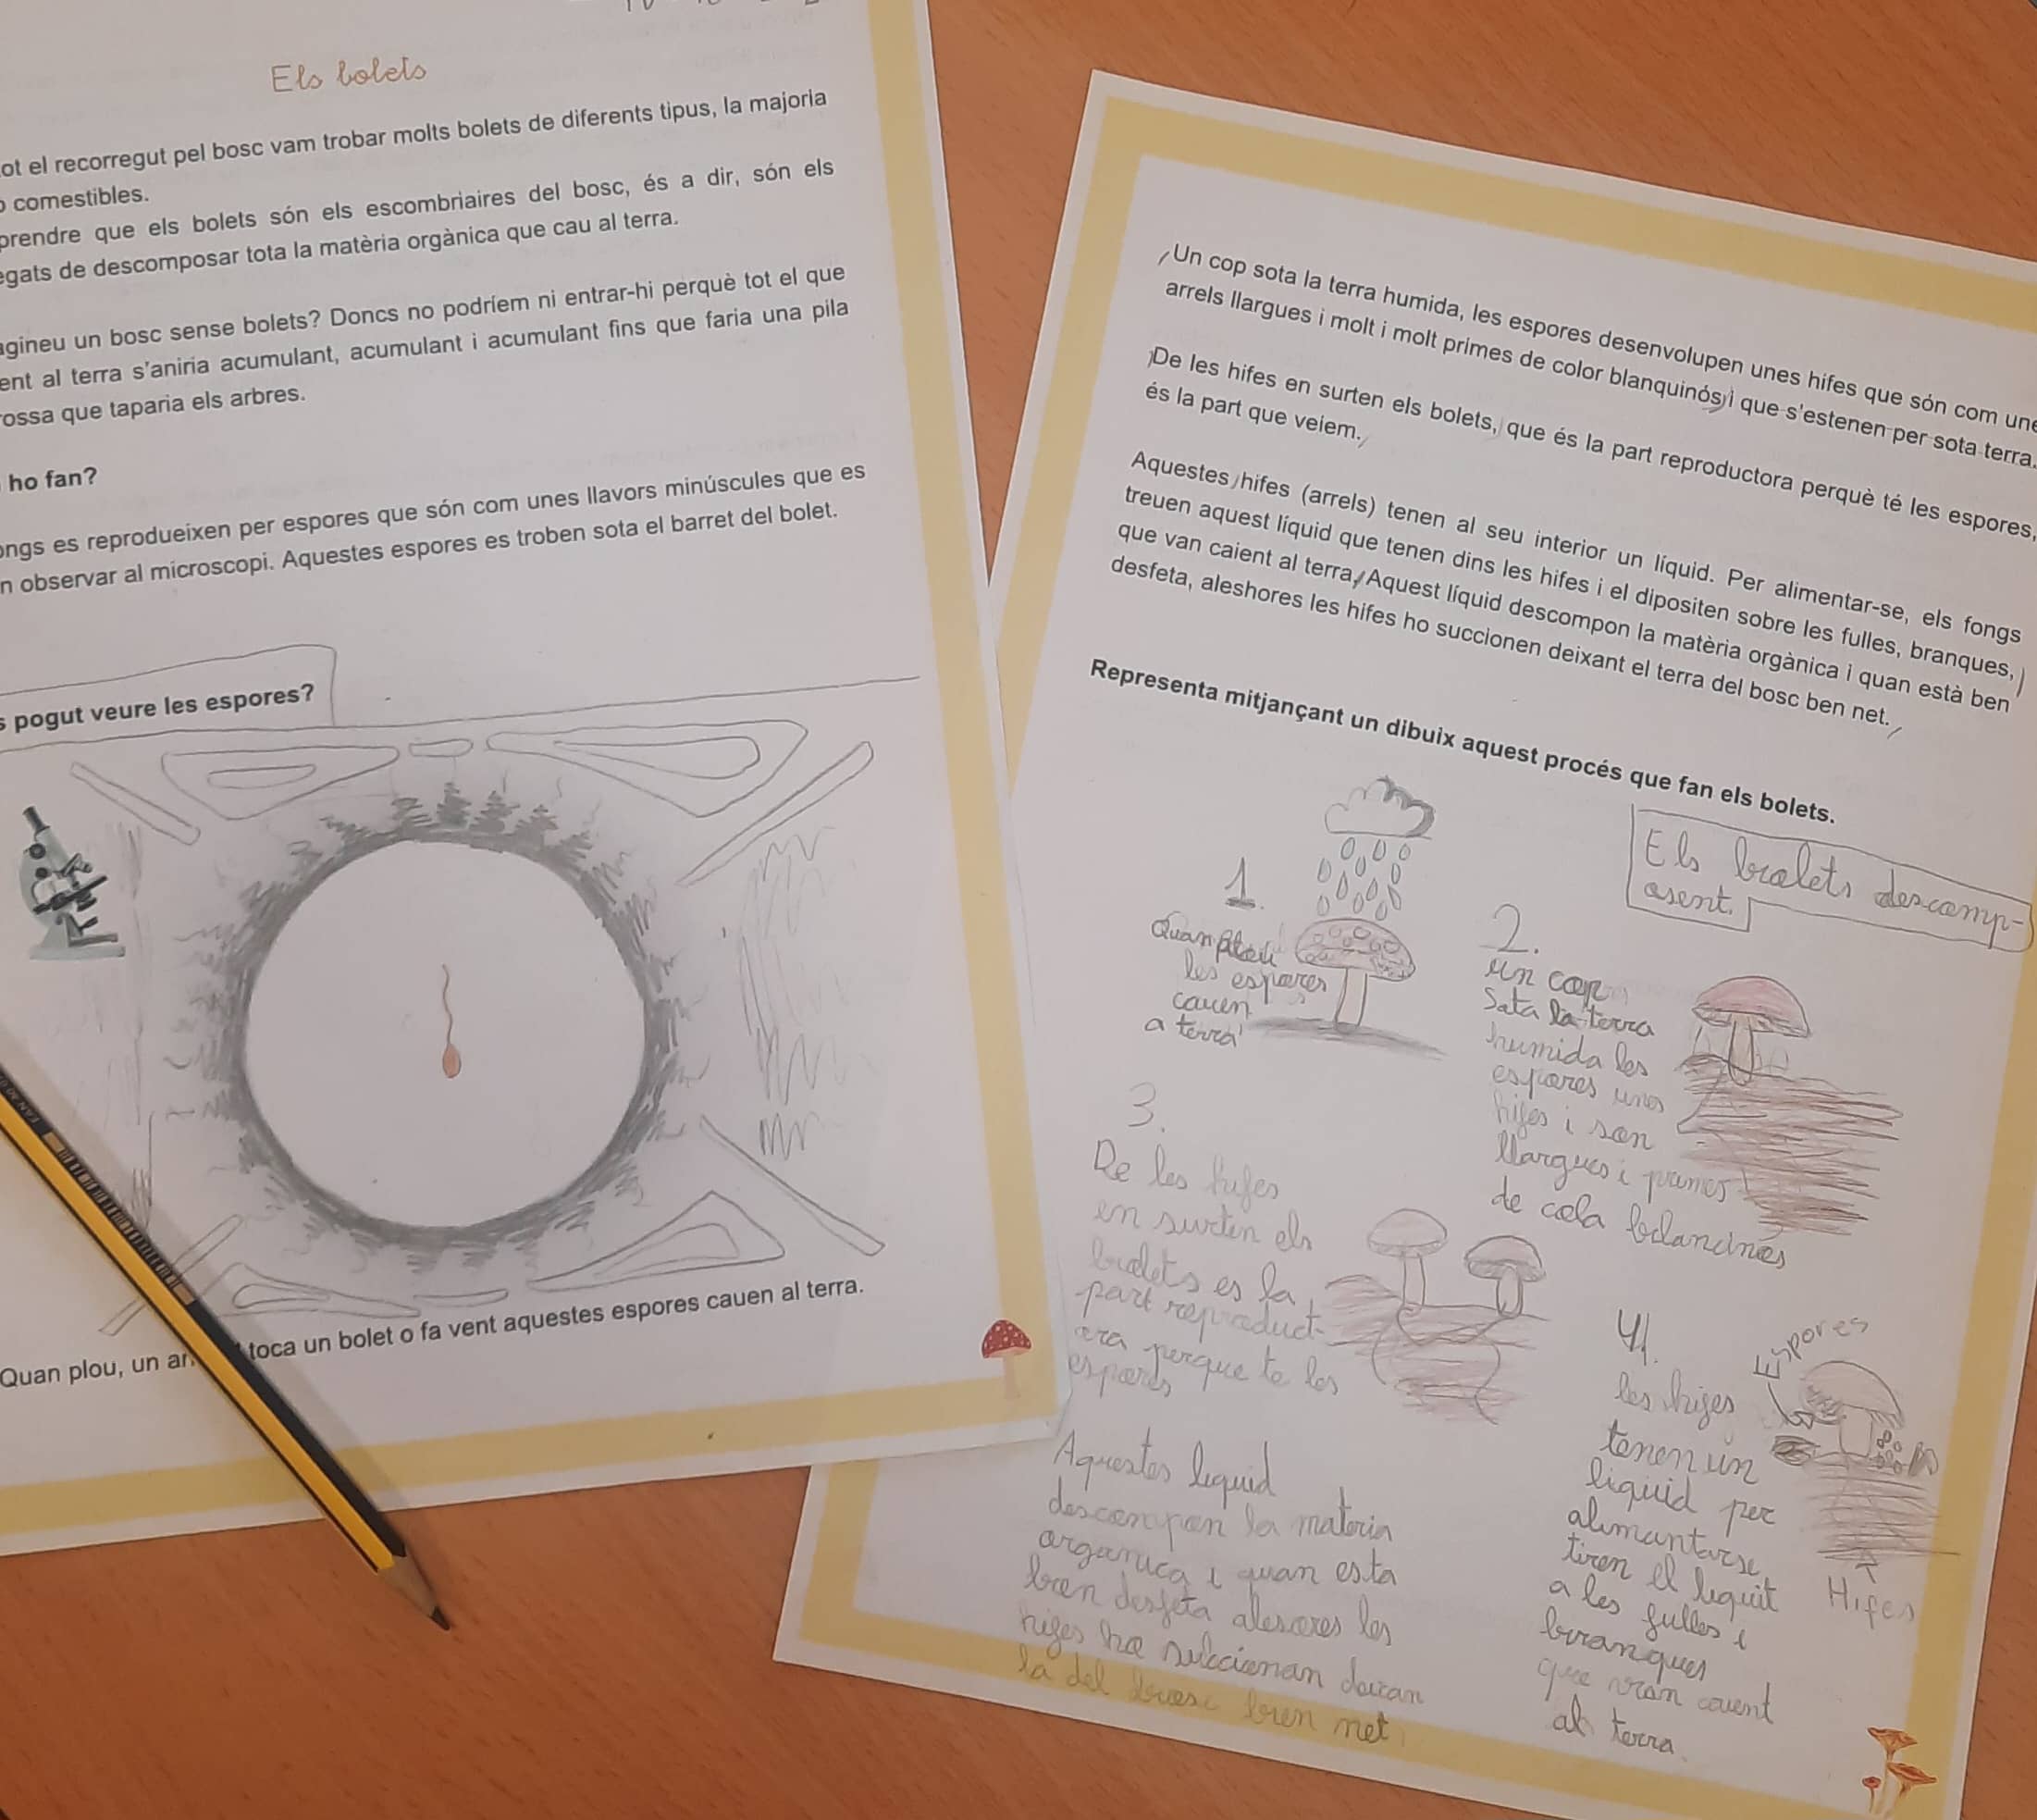 Els bolets
ot el recorregut pel bosc vam trobar molts bolets de diferents tipus, la majoria
comestibles.
prendre que els bolets són els escombriaires del bosc, és a dir, són els
egats de descomposar tota la matèria orgànica que cau al terra.
agineu un bosc sense bolets? Doncs no podríem ni entrar-hi perquè tot el que
ent al terra s'aniria acumulant, acumulant i acumulant fins que faria una pila
rossa que taparia els arbres.
ho fan?
ongs es reprodueixen per espores que són com unes llavors minúscules que es
n observar al microscopi. Aquestes espores es troben sota el barret del bolet.
s pogut veure les espores?
Quan plou, un an toca un bolet o fa vent aquestes espores cauen al terra.
Un cop sota la terra humida, les espores desenvolupen unes hifes que són com une
arrels llargues i molt i molt primes de color blanquinós i que s'estenen per sota terra.
De les hifes en surten els bolets, que és la part reproductora perquè té les espores,
és la part que veiem.
Aquestes hifes (arrels) tenen al seu interior un líquid. Per alimentar-se, els fongs
treuen aquest líquid que tenen dins les hifes i el dipositen sobre les fulles, branques,
que van caient al terra. Aquest líquid descompon la matèria orgànica i quan està ben
desfeta, aleshores les hifes ho succionen deixant el terra del bosc ben net.
Representa mitjançant un dibuix aquest procés que fan els bolets.
Els bolets descomp-
osent.
1.
Quan plou
les espores
cauen
a terra
2.
un cop
Sota la terra
humida les
espores unes
hifes i son
llargues i primes
de cola
3.
De les hifes
en surten els
bolets es la
part reproduct-
ora perque te les
espores
4.
Espores
les hifes
tenen un
liquid per
alimantarse
tiren el liquit
a les fulles i
branques
que van cauent
al terra.
Hifes
Aquestes liquid
descompon la materia
organica i quan esta
ben desfeta alesores les
hifes ho
la del bosc ben net